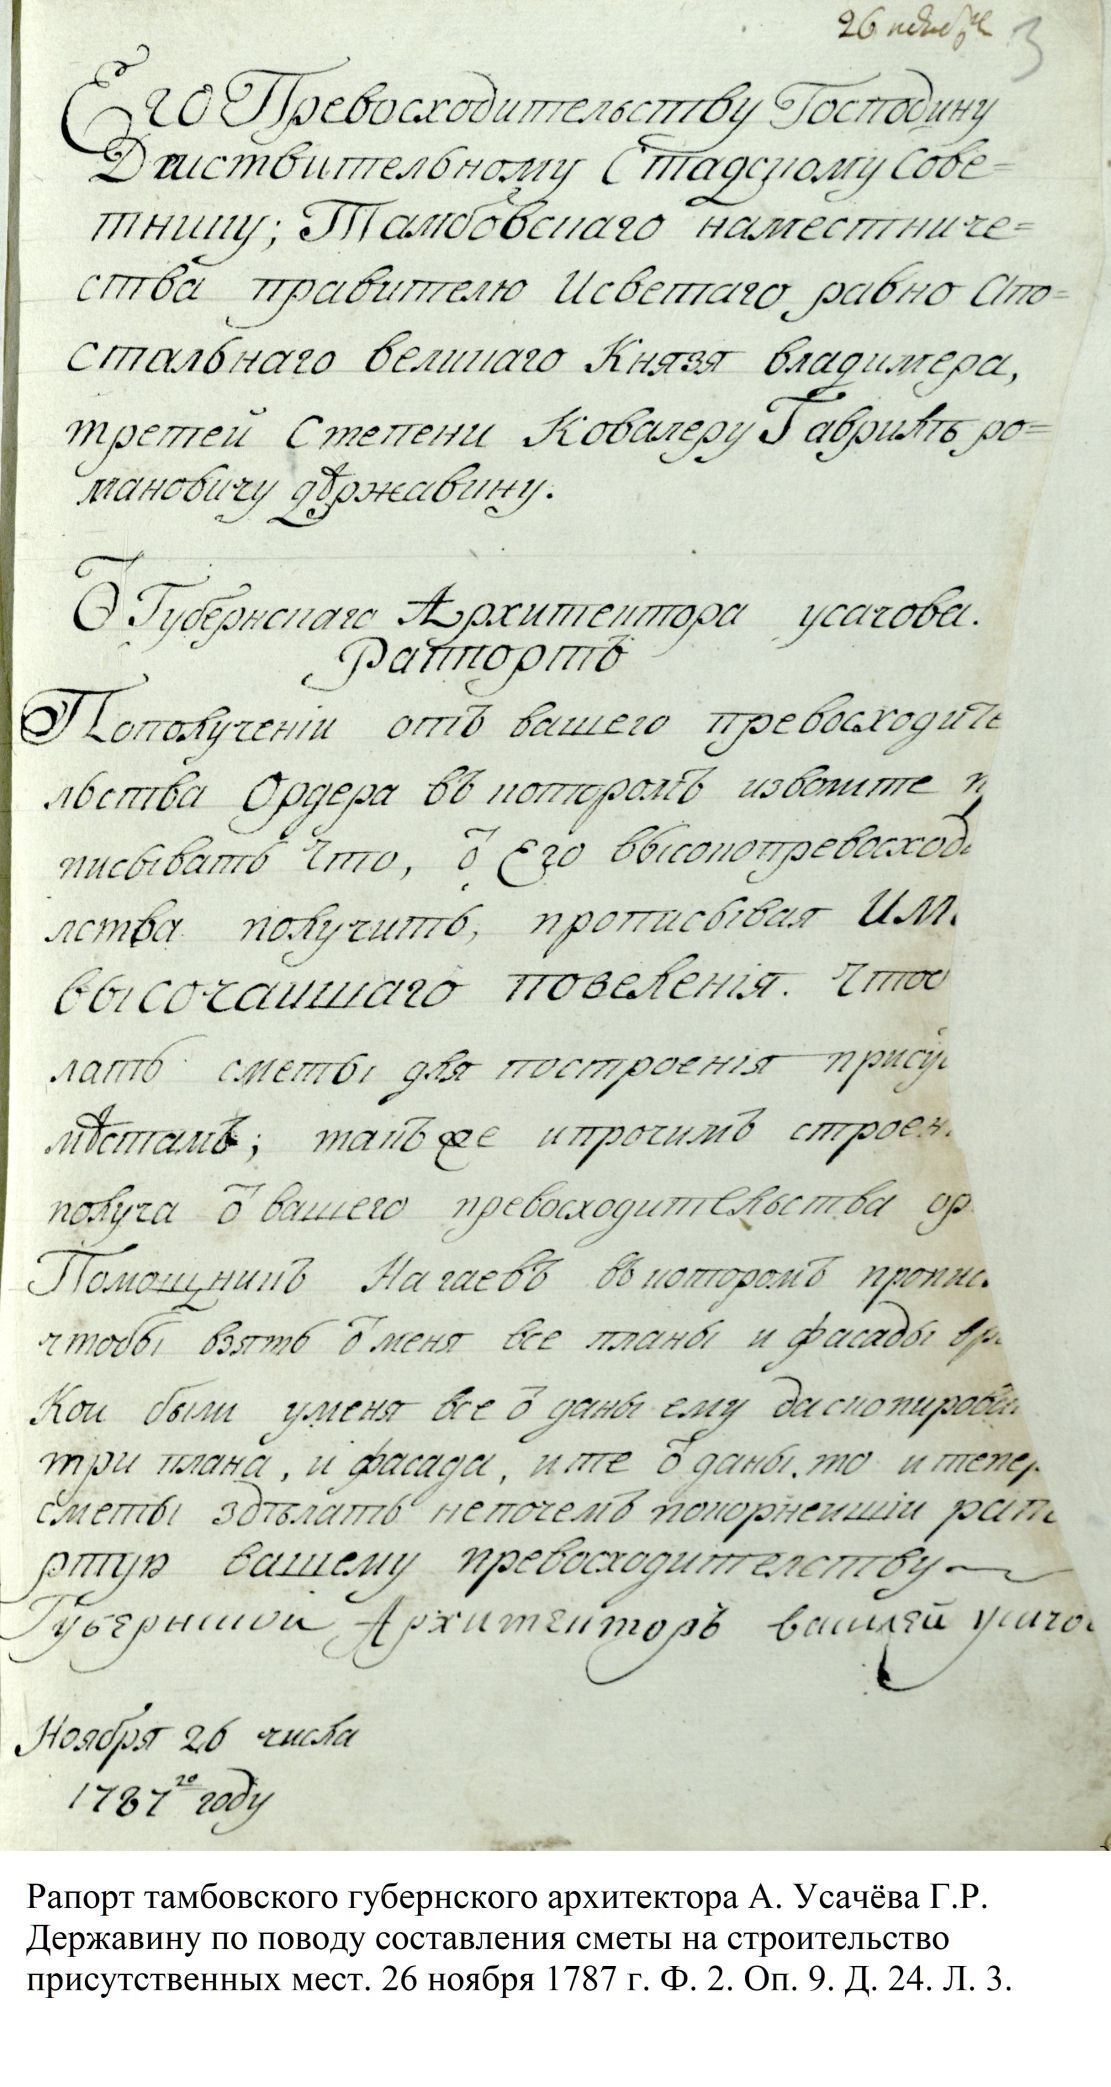 26 ноября 3
Его Превосходительству Господину
Дѣиствительному Статскому Сове=
тнику; Тамбовскаго наместниче=
ства правителю Исветаго равно Апо=
стальнаго великаго Князя владимера,
третей Степени Ковалеру Гаврилѣ ро=
мановичу дѣржавину.
Ѿ Губернскаго Архитектора усачова.
Рапportъ
Пополученіи отъ вашего превосходите
льства Ордера въ которомъ изволите п
писывать Что, ѿ Его высокопревосход
лства получить, прописывая Им
высочаишаго повеленія. Что
лать сметы для построенія прису
мѣстамъ; такъ же ипрочимъ строен
получа ѿ вашего превосходительства ор
Помощникъ Нагаевъ въ которомъ пропис
чтобы взять ѿ меня все планы и фасады
Кои были уменя все ѿ даны ему даскопирован
три плана, и фасада, ите ѿ даны, то итепер
сметы здѣлать непочемъ покорнеишіи рапо
ртую вашему превосходителству
Губернской Архитекторъ василей усачо
Ноября 26 числа
1787го году
Рапорт тамбовского губернского архитектора А. Усачёва Г.Р.
Державину по поводу составления сметы на строительство
присутственных мест. 26 ноября 1787 г. Ф. 2. Оп. 9. Д. 24. Л. 3.